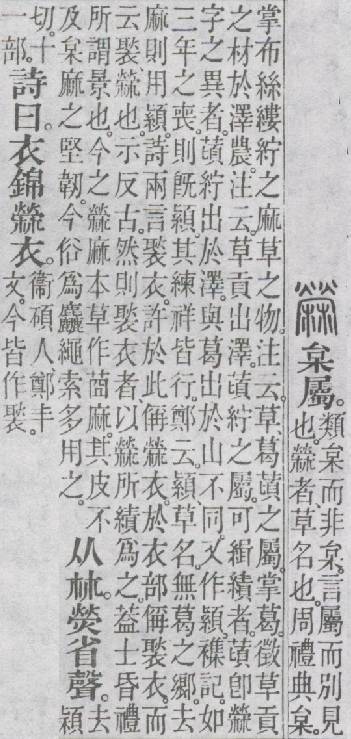 檾 枲屬。類枲而非枲。言屬而別見
也。檾者、草名也。周禮典枲。
掌布絲縷紵之麻草之物。注云。草、葛䔛之屬。掌葛徵草貢
之材於澤農。注云。草貢出澤。䔛紵之屬。可緝績者。䔛卽檾
字之異者。䔛紵出於澤。與葛出於山不同。又作顈。襍記。如
三年之喪則旣顈。其練祥皆行。鄭云。顈、草名。無葛之鄉。去
麻則用顈。詩兩言褧衣。許於此偁檾衣。於衣部偁褧衣。而
云褧檾也。示反古。然則褧衣者、以檾所績爲之。葢士昏禮
所謂景也。今之檾麻、本草作莔麻。其皮不
及枲麻之堅韌。今俗爲麤繩索多用之。
从𣏟。熒省聲。去潁
切。十
一部。
詩曰。衣錦檾衣。衞碩人、鄭丰
文。今皆作褧。